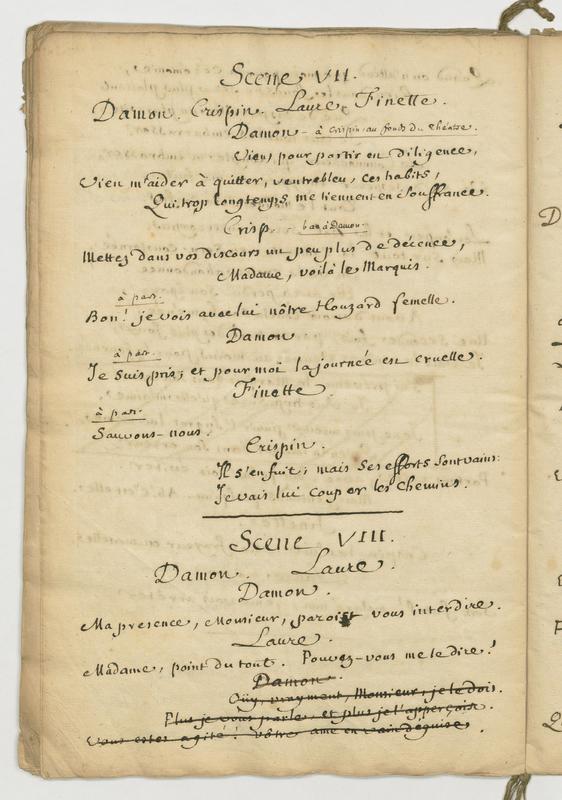 Scene VII.
Damon. Crispin. Laure. Finette.
Damon - à Crispin, au fonds du theatre.
Vien, pour partir en diligence,
Vien m'aider à quitter, ventrebleu, ces habits,
Qui trop longtemps me tiennent en souffrance.
Crisp. bas à Damon.
Mettez dans vos discours un peu plus de décence,
Madame, voilà le Marquis.
à part.
Bon! je vois avec lui nôtre Houzard femelle.
Damon
à part.
Je suis pris; et pour moi la journée est cruelle.
Finette.
à part.
Sauvons-nous.
Crispin.
Il s'enfuit; mais ses efforts sont vains:
Je vais lui couper les chemins.
Scene VIII.
Damon. Laure.
Damon.
Ma presence, Monsieur, paroist vous interdire.
Laure.
Madame, point du tout. Pouvez-vous me le dire!
Damon.
Oüy, vrayment, Monsieur, je le dois.
Plus je vous parle, et plus je l'apperçois.
Vous estes agité! vôtre ame en vain deguise,